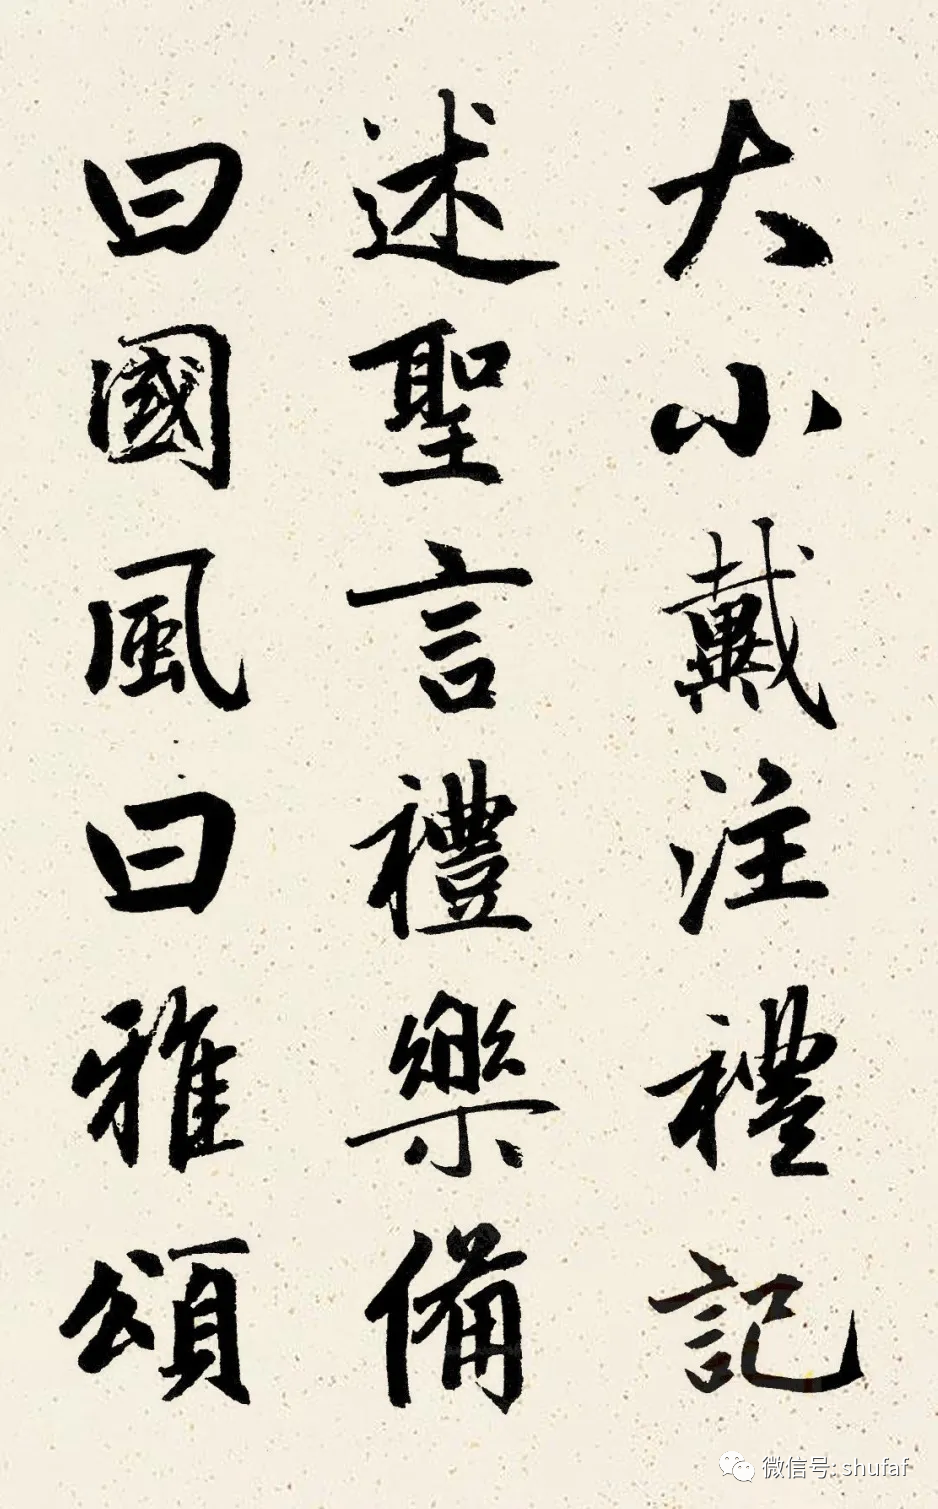 大小戴注禮記
述聖言禮樂備
曰國風曰雅頌
微信号: shufaf